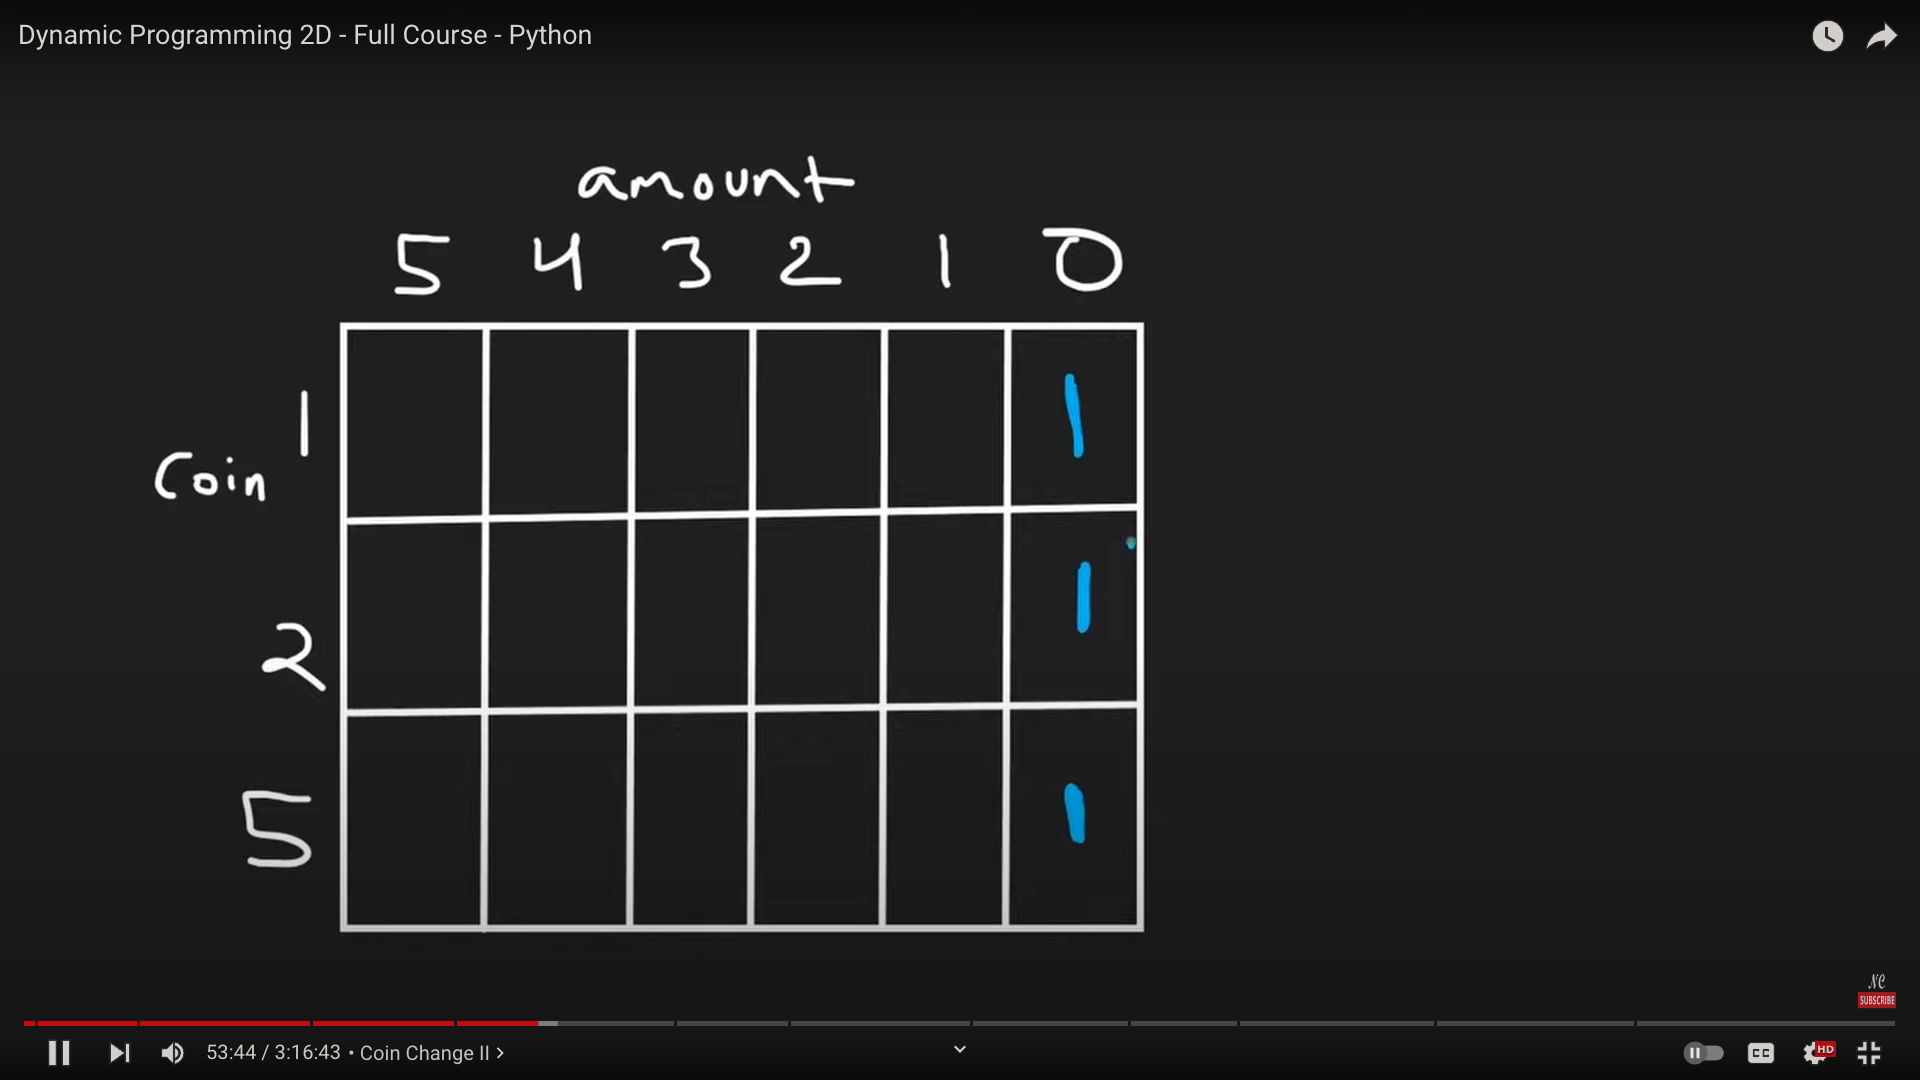 Dynamic Programming 2D - Full Course - Python
amount
5 4 3 2 1 0
1 1
Coin
2 1
5 1
NC
SUBSCRIBE
53:44 / 3:16:43 • Coin Change II >
CC
HD